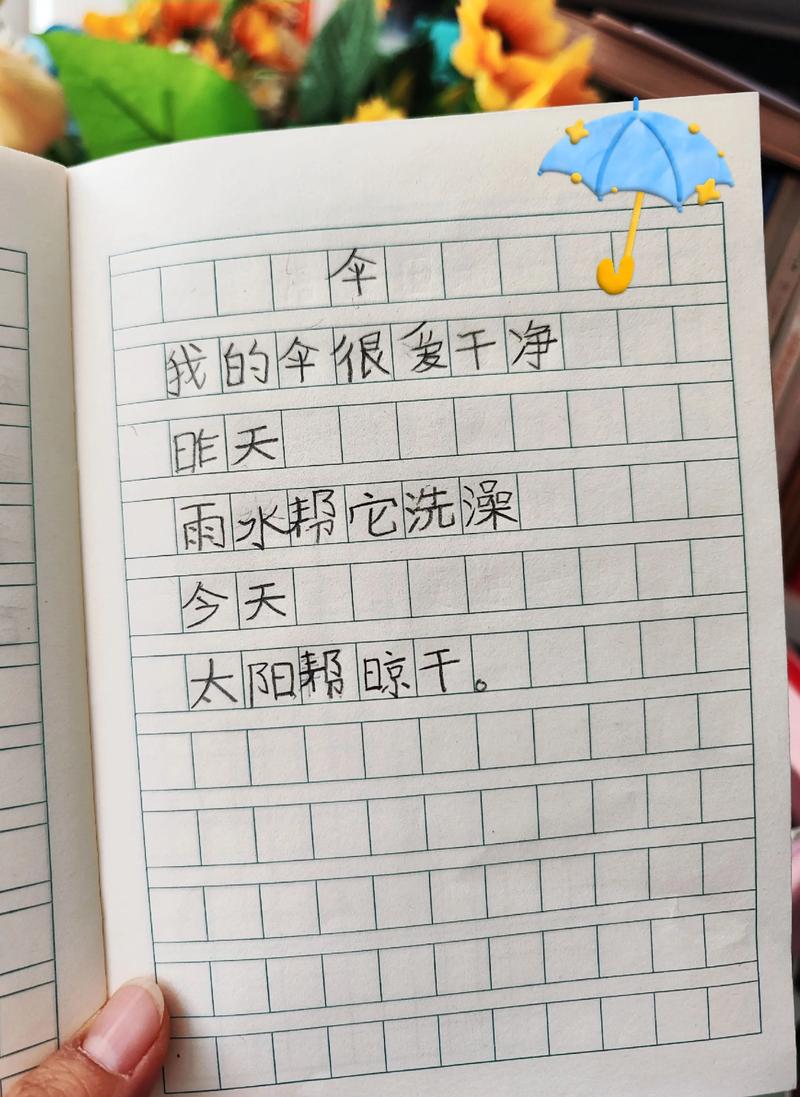 伞
我的伞很爱干净
昨天
雨水帮它洗澡
今天
太阳帮晾干。